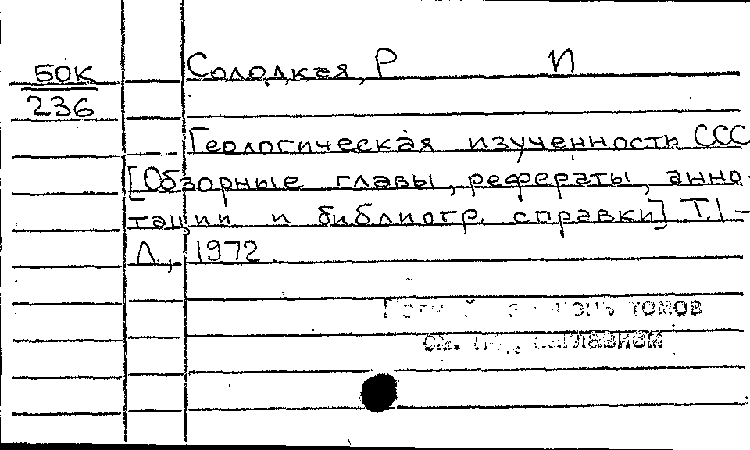 БОК Солодкая, Р И
236
Геологическая изученность ССС
[Обзорные главы, рефераты, анно-
тации и библиогр. справки] Т.1-
Л., 1972.
томов
см. под заглавием